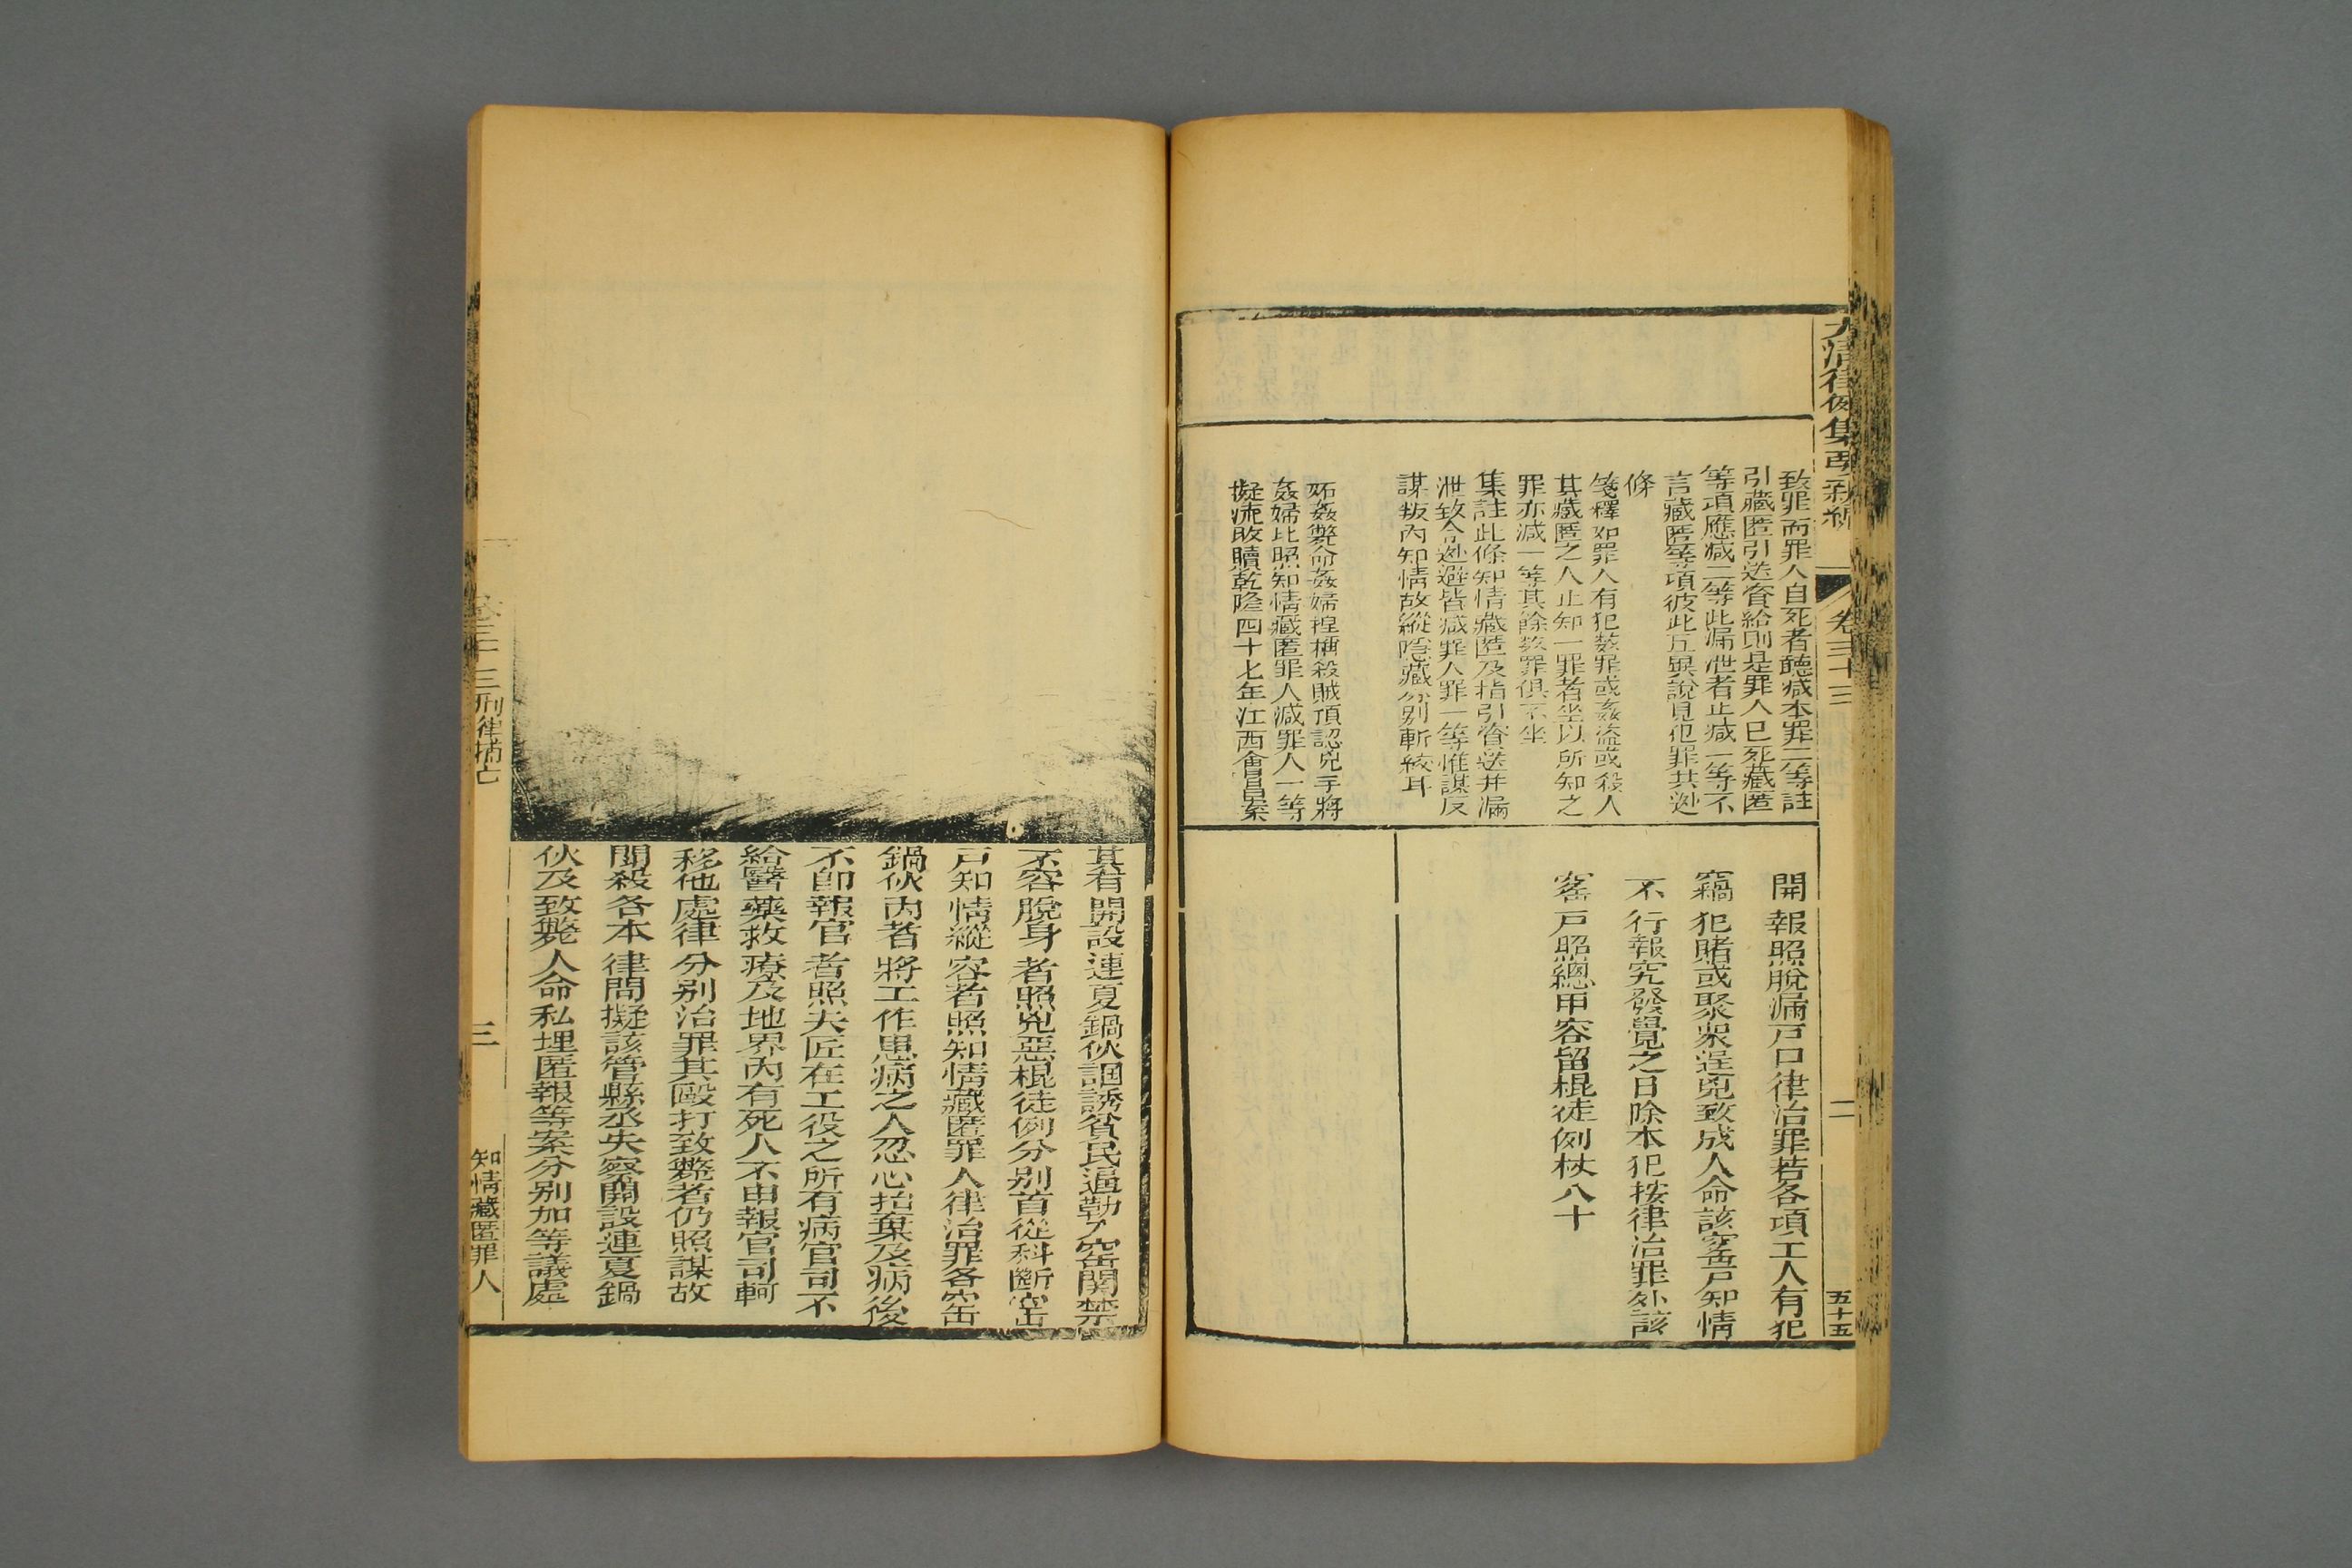 大清律例集要新編
卷三十三
二
五十五
致罪而罪人自死者聽減本罪二等註
引藏匿引送資給則是罪人已死藏匿
等項應減二等此漏泄者止減一等不
言藏匿等項彼此互異說見犯罪共逃
條
箋釋如罪人有犯數罪或姦盜或殺人
其藏匿之人止知一罪者坐以所知之
罪亦減一等其餘數罪俱不坐
集註此條知情藏匿及指引資送并漏
泄致令逃避皆減罪人罪一等惟謀反
謀叛內知情故縱隱藏分別斬絞耳
妬姦斃命姦婦捏稱殺賊頂認兇手將
姦婦比照知情藏匿罪人減罪人一等
擬流收贖乾隆四十七年江西會昌案
開報照脫漏戸口律治罪若各項工人有犯
窩犯賭或聚衆逞兇致成人命該窰戸知情
不行報究發覺之日除本犯按律治罪外該
窰戸照總甲容留棍徒例杖八十
其有開設連夏鍋伙誆誘貧民逼勒入窑關禁
不容脫身者照兇惡棍徒例分別首從科斷窑
戸知情縱容者照知情藏匿罪人律治罪各窑
鍋伙內者將工作患病之人忍心抬棄及病後
不即報官者照夫匠在工役之所有病官司不
給醫藥救療及地界內有死人不申報官司輒
移他處律分別治罪其毆打致斃者仍照謀故
鬪殺各本律問擬該管縣丞失察開設連夏鍋
伙及致斃人命私埋匿報等案分別加等議處
卷三十三刑律捕亡
三
知情藏匿罪人